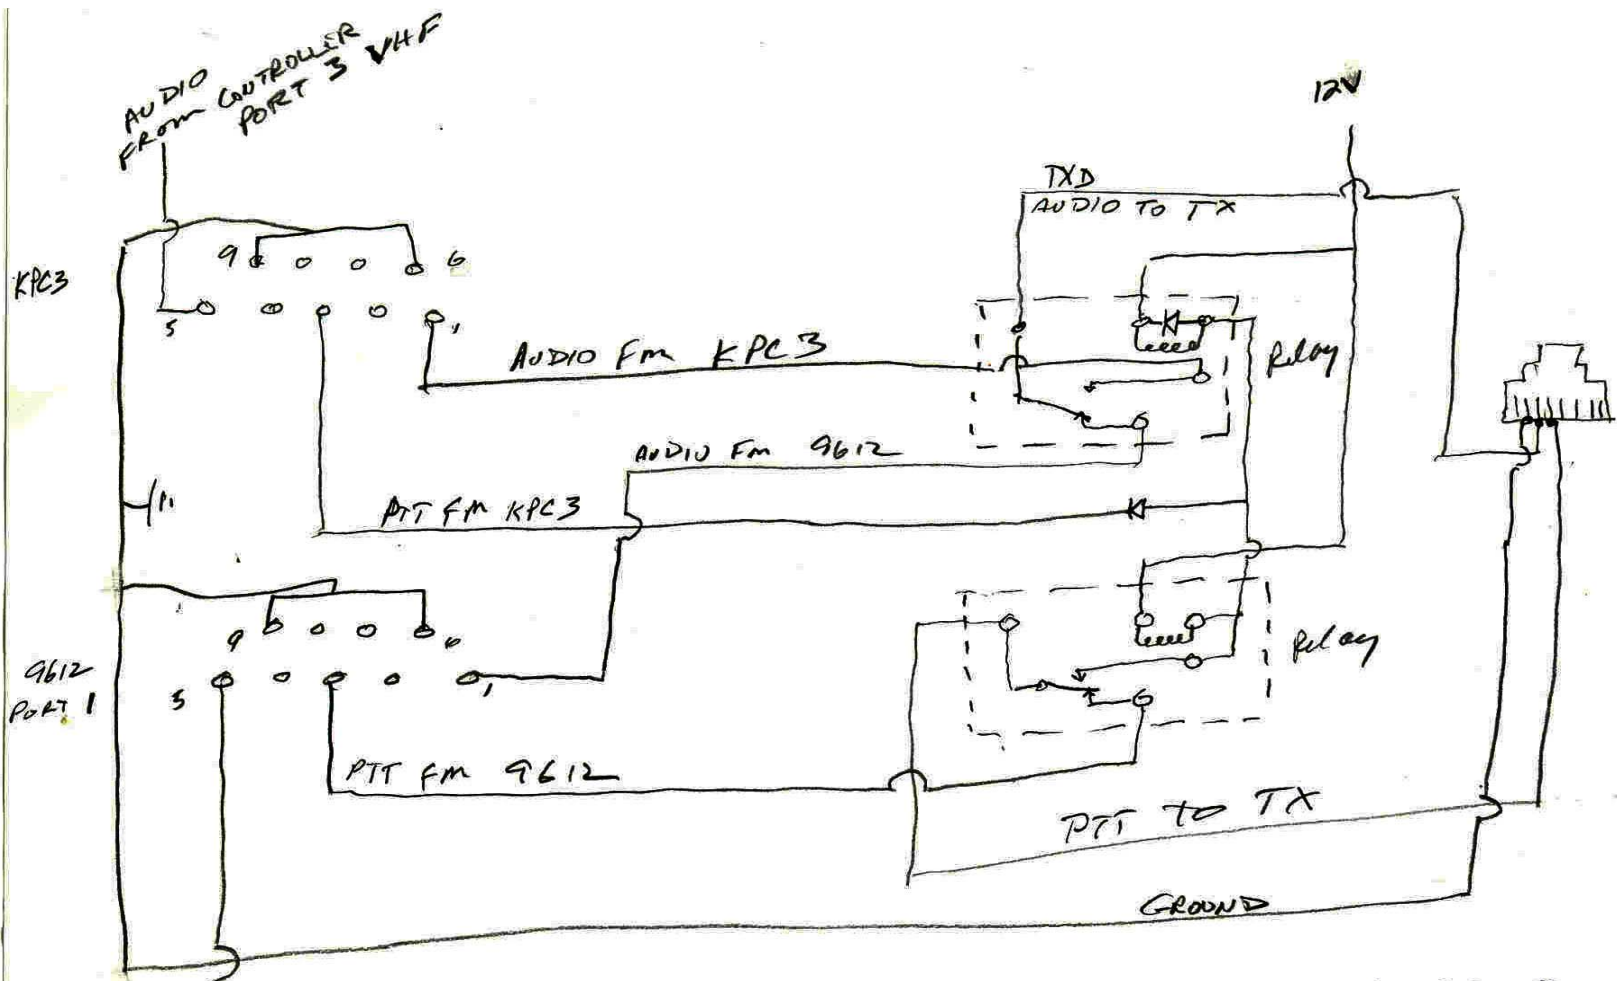 AUDIO
FROM CONTROLLER
PORT 3 VHF
12V
TXD
AUDIO TO TX
9
6
KPC3
5
1
AUDIO FM KPC3
Relay
AUDIO FM 9612
PTT FM KPC3
9
6
9612
PORT 1
5
1
Relay
PTT FM 9612
PTT TO TX
GROUND